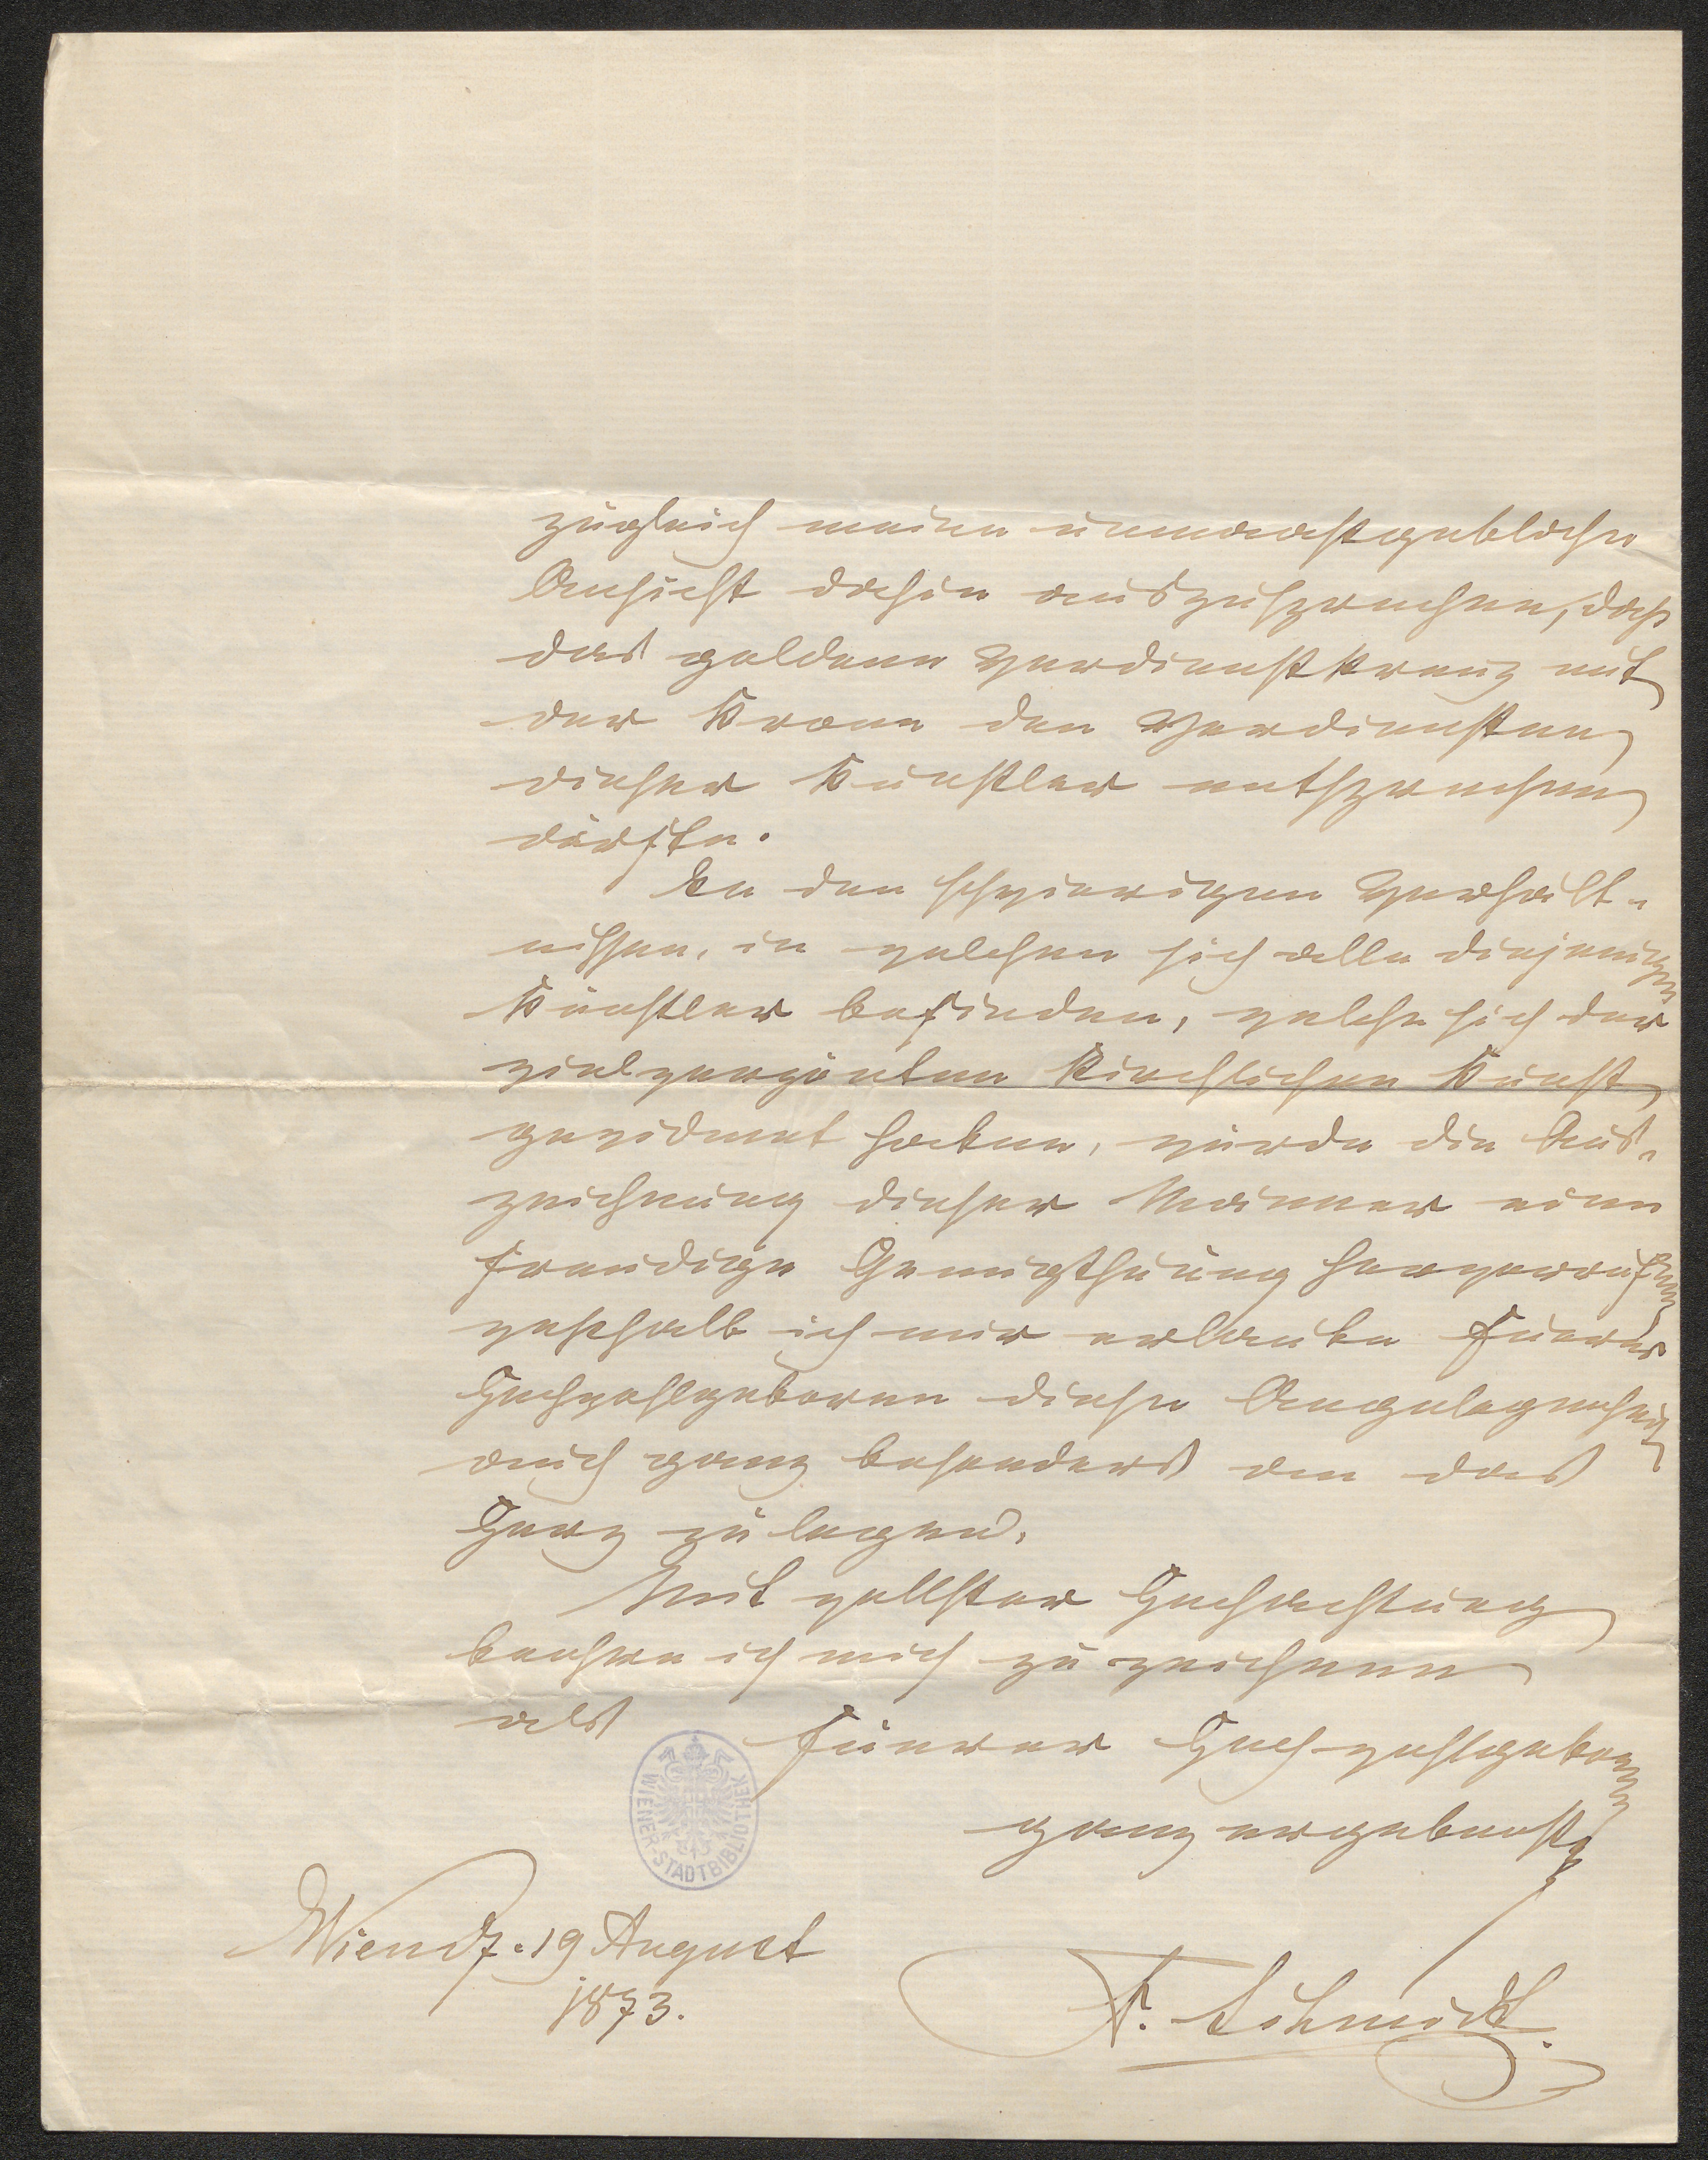 zugleich meine unmaastgebliche
Ansicht dahin auszusprechen, daß
das goldene Verdienstkreuz mit
der Krone den Verdiensten
dieser Künstler entsprechen
dürfte.
Bei den schwierigen Verhält-
nissen, in welchen sich alle diejenigen
Künstler befinden, welche sich der
vielverpönten kirchlichen Kunst
gewidmet haben, würde die Aus-
zeichnung dieser Männer eine
freudige Genugthuung hervorrufen
weshalb ich mir erlaube Euerer
Hochwohlgeboren diese Angelegenheit
auch ganz besonders an das
Herz zu legen.
Mit vollster Hochachtung
beehre ich mich zu zeichnen
als
Euerer Hochwohlgeboren
ganz ergebenster
Wien d. 19 August
1873.
F. Schmidt.
WIENER-STADTBIBLIOTHEK